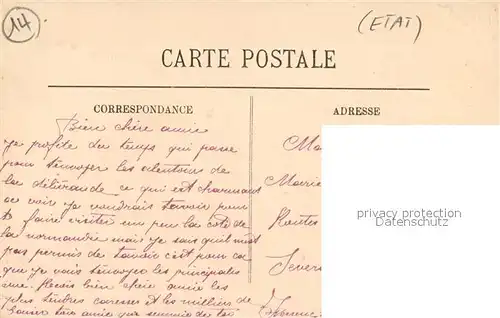 14
(ETAT)
CARTE POSTALE
CORRESPONDANCE
ADRESSE
Bien chère amie
je profite du temps qui passe
pour t'envoyer les alentours de
la délivrande ce qui est charmant
a voir je voudrais t'avoir pour
te faire visiter un peu la côte de
la normandie mais je sais qu'il n'est
pas permis de c'est pour ca
que je vais t'envoyer les principales
vue. Reçois bien chère amie les
plus tendres caresses et les milliers de
baiser ton amie qui de toi
Ma
Mairie
Hautes
privacy protection
VINTAGE POSTCARDS